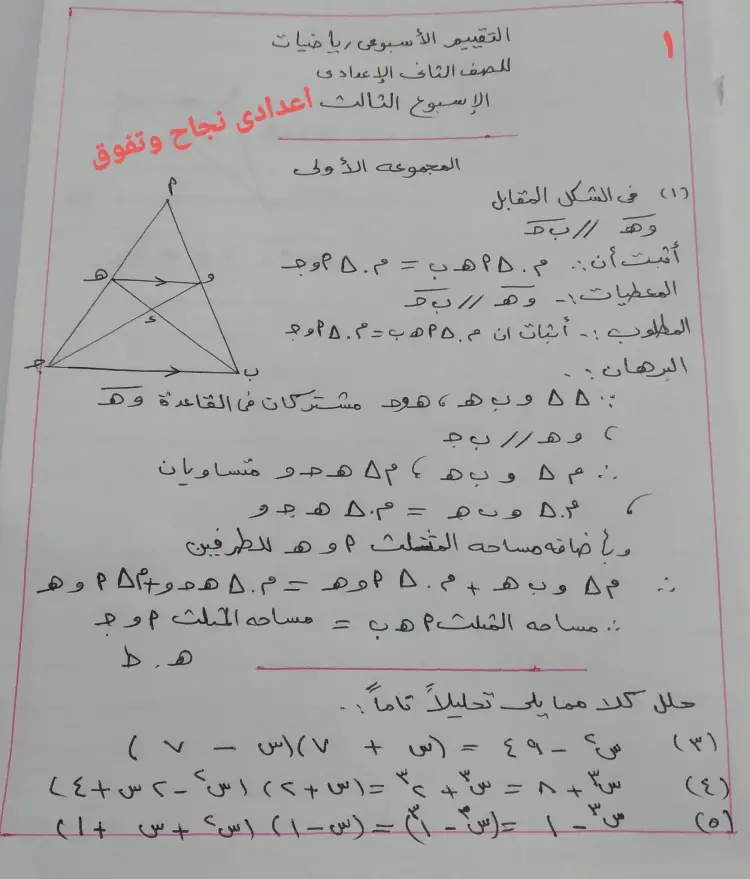 ١
التقييم الأسبوعى رياضيات
للصف الثانى الإعدادى
الإسبوع الثالث
اعدادى نجاح وتفوق
المجموعه الأولى
(١) فى الشكل المقابل
وهـ // بجـ
أثبت أن :. م.∆ ٩هـب = م.∆ ٩وجـ
المعطيات :- وهـ // بجـ
المطلوب :- أثبات ان م.∆ ٩هـب = م.∆ ٩وجـ
البرهان :.
∵ ∆∆ وبهـ ، هـوجـ مشتركان فى القاعدة وهـ
، وهـ // بجـ
∴ م∆ وبهـ ، م∆ هـجـو متساويان
، م.∆ وبهـ = م.∆ هـجـو
وبأضافه مساحه المثلث ٩وهـ للطرفين
∴ م∆ وبهـ + م.∆ ٩وهـ = م.∆ هـجـو + م∆ ٩وهـ
∴ مساحه المثلث ٩هـب = مساحه المثلث ٩وجـ
هـ . ط
٩
هـ
و
ء
جـ
ب
حلل كلا مما يلى تحليلاً تاماً :.
(٣) س² - ٤٩ = (س + ٧)(س - ٧)
(٤) س³ + ٨ = س³ + ٢³ = (س + ٢)(س² - ٢س + ٤)
(٥) س³ - ١ = (س³ - ١³) = (س - ١)(س² + س + ١)